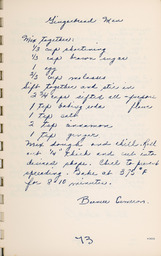 Gingerbread Men
Mix together:
1/3 cup shortening
1/3 cup brown sugar
1 egg
2/3 cup molasses
Sift together and stir in
2 3/4 cups sifted all-purpose
1 tsp baking soda flour
1 tsp salt
2 tsp cinnamon
1 tsp ginger
Mix dough and chill. Roll
out 1/4" thick and cut into
desired shape. Chill to prevent
spreading. Bake at 375°F
for 8-10 minutes.
73